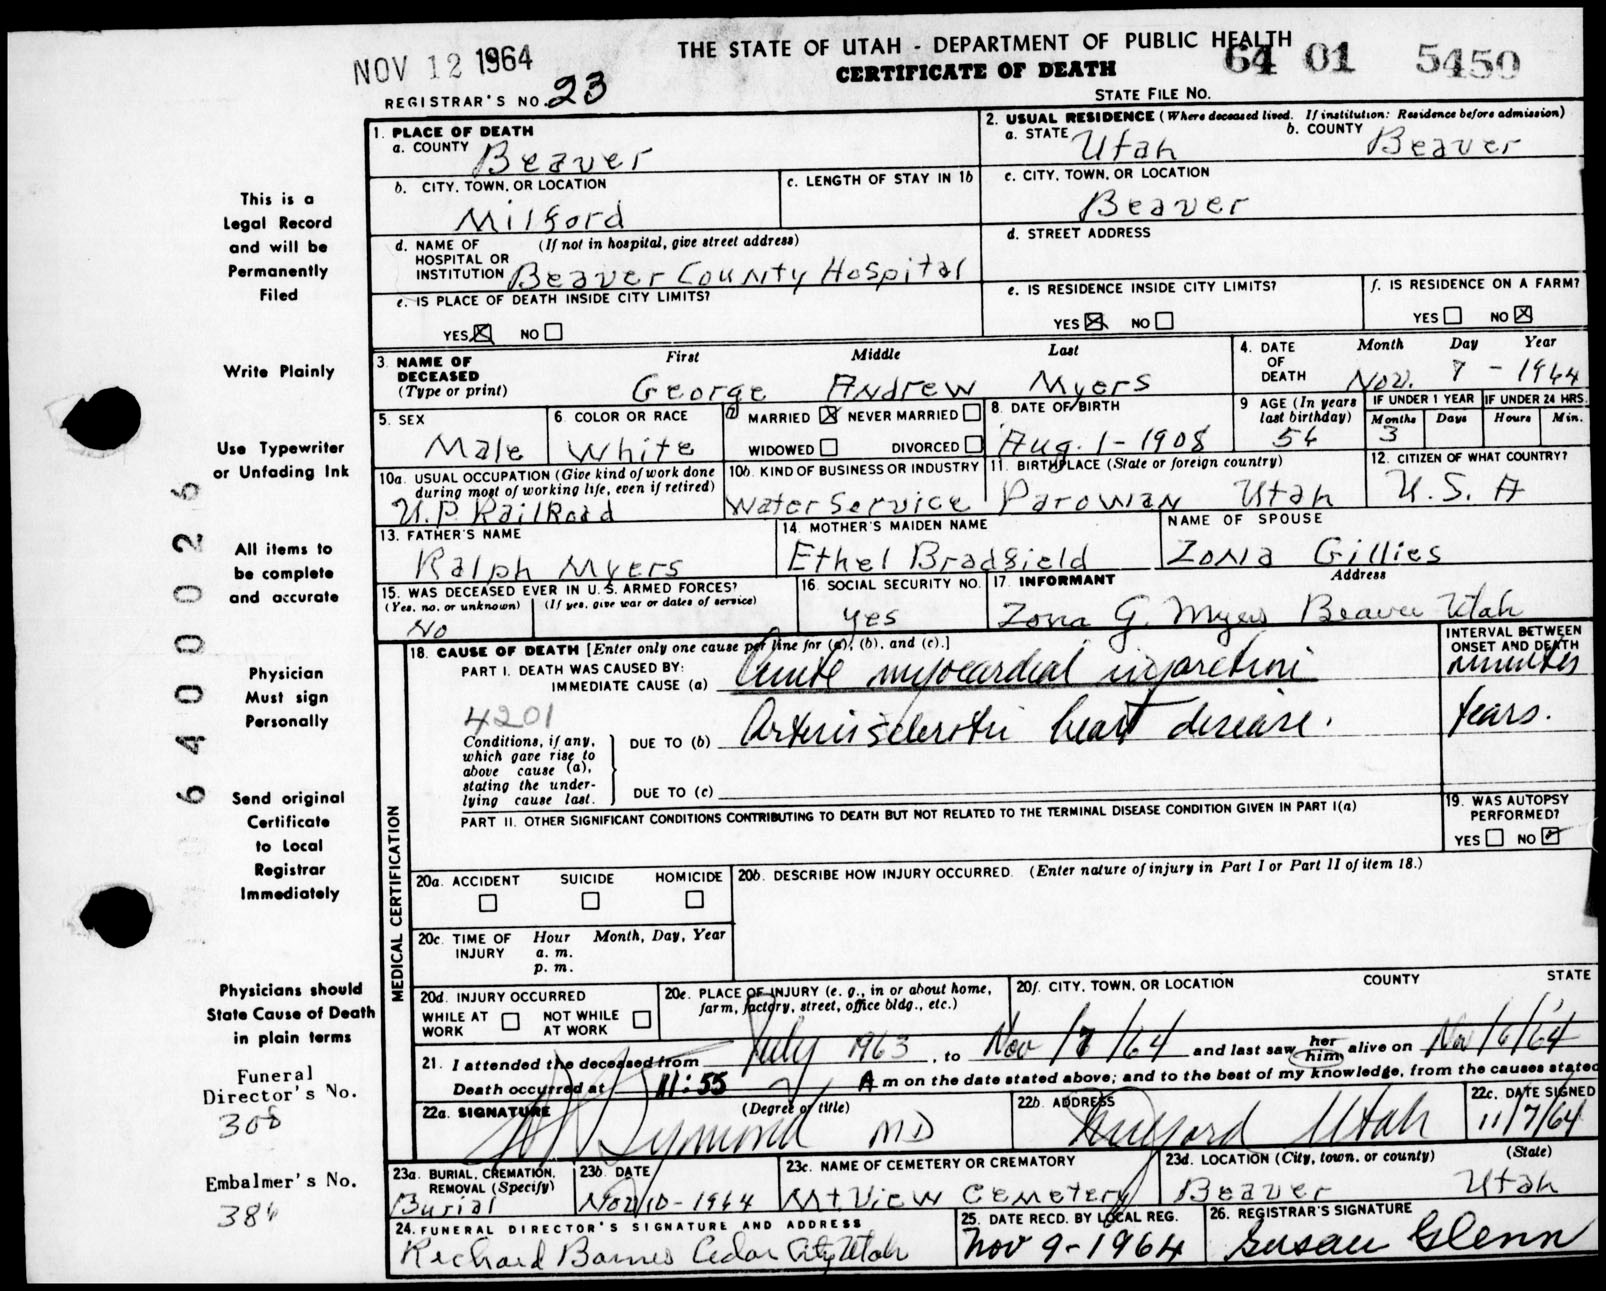 NOV 12 1964
THE STATE OF UTAH - DEPARTMENT OF PUBLIC HEALTH
CERTIFICATE OF DEATH
64 01 5450
REGISTRAR'S NO. 23
STATE FILE NO.
This is a
Legal Record
and will be
Permanently
Filed
Write Plainly
Use Typewriter
or Unfading Ink
All items to
be complete
and accurate
Physician
Must sign
Personally
Send original
Certificate
to Local
Registrar
Immediately
Physicians should
State Cause of Death
in plain terms
Funeral
Director's No.
308
Embalmer's No.
386
6400026
1. PLACE OF DEATH
a. COUNTY Beaver
2. USUAL RESIDENCE (Where deceased lived. If institution: Residence before admission)
a. STATE Utah b. COUNTY Beaver
b. CITY, TOWN, OR LOCATION
Milford
c. LENGTH OF STAY IN 1b
c. CITY, TOWN, OR LOCATION
Beaver
d. NAME OF HOSPITAL OR INSTITUTION (If not in hospital, give street address)
Beaver County Hospital
d. STREET ADDRESS
e. IS PLACE OF DEATH INSIDE CITY LIMITS?
YES ☒ NO ☐
e. IS RESIDENCE INSIDE CITY LIMITS?
YES ☒ NO ☐
f. IS RESIDENCE ON A FARM?
YES ☐ NO ☒
3. NAME OF DECEASED (Type or print) First Middle Last
George Andrew Myers
4. DATE OF DEATH Month Day Year
Nov. 7 - 1964
5. SEX
Male
6 COLOR OR RACE
White
7 MARRIED ☒ NEVER MARRIED ☐
WIDOWED ☐ DIVORCED ☐
8. DATE OF BIRTH
Aug. 1 - 1908
9 AGE (In years last birthday)
56
IF UNDER 1 YEAR
Months 3 Days
IF UNDER 24 HRS.
Hours Min.
10a. USUAL OCCUPATION (Give kind of work done during most of working life, even if retired)
U.P. Railroad
10b. KIND OF BUSINESS OR INDUSTRY
Water Service
11. BIRTHPLACE (State or foreign country)
Parowan Utah
12. CITIZEN OF WHAT COUNTRY?
U.S.A
13. FATHER'S NAME
Ralph Myers
14. MOTHER'S MAIDEN NAME
Ethel Bradfield
NAME OF SPOUSE
Zona Gillies
15. WAS DECEASED EVER IN U.S. ARMED FORCES?
(Yes, no, or unknown) (If yes, give war or dates of service)
No
16. SOCIAL SECURITY NO.
yes
17. INFORMANT Address
Zona G. Myers Beaver Utah
MEDICAL CERTIFICATION
18. CAUSE OF DEATH [Enter only one cause per line for (a), (b), and (c).]
INTERVAL BETWEEN ONSET AND DEATH
PART I. DEATH WAS CAUSED BY:
IMMEDIATE CAUSE (a) Acute myocardial infarction minutes
4201
Conditions, if any, which gave rise to above cause (a), stating the underlying cause last.
DUE TO (b) Arteriosclerotic heart disease. Years.
DUE TO (c)
PART II. OTHER SIGNIFICANT CONDITIONS CONTRIBUTING TO DEATH BUT NOT RELATED TO THE TERMINAL DISEASE CONDITION GIVEN IN PART I(a)
19. WAS AUTOPSY PERFORMED?
YES ☐ NO ☑
20a. ACCIDENT SUICIDE HOMICIDE
☐ ☐ ☐
20b. DESCRIBE HOW INJURY OCCURRED. (Enter nature of injury in Part I or Part II of item 18.)
20c. TIME OF INJURY Hour Month, Day, Year
a. m.
p. m.
20d. INJURY OCCURRED
WHILE AT WORK ☐ NOT WHILE AT WORK ☐
20e. PLACE OF INJURY (e. g., in or about home, farm, factory, street, office bldg., etc.)
20f. CITY, TOWN, OR LOCATION COUNTY STATE
21. I attended the deceased from July 1963, to Nov /7 /64 and last saw her him alive on Nov/6/64
Death occurred at 11:55 A m on the date stated above; and to the best of my knowledge, from the causes stated
22a. SIGNATURE (Degree or title)
Symond MD
22b. ADDRESS
Milford Utah
22c. DATE SIGNED
11/7/64
23a. BURIAL, CREMATION, REMOVAL (Specify)
Burial
23b. DATE
Nov 10 - 1964
23c. NAME OF CEMETERY OR CREMATORY
Mt View Cemetery
23d. LOCATION (City, town, or county) (State)
Beaver Utah
24. FUNERAL DIRECTOR'S SIGNATURE AND ADDRESS
Richard Barnes Cedar City Utah
25. DATE RECD. BY LOCAL REG.
Nov 9 - 1964
26. REGISTRAR'S SIGNATURE
Susan Glenn